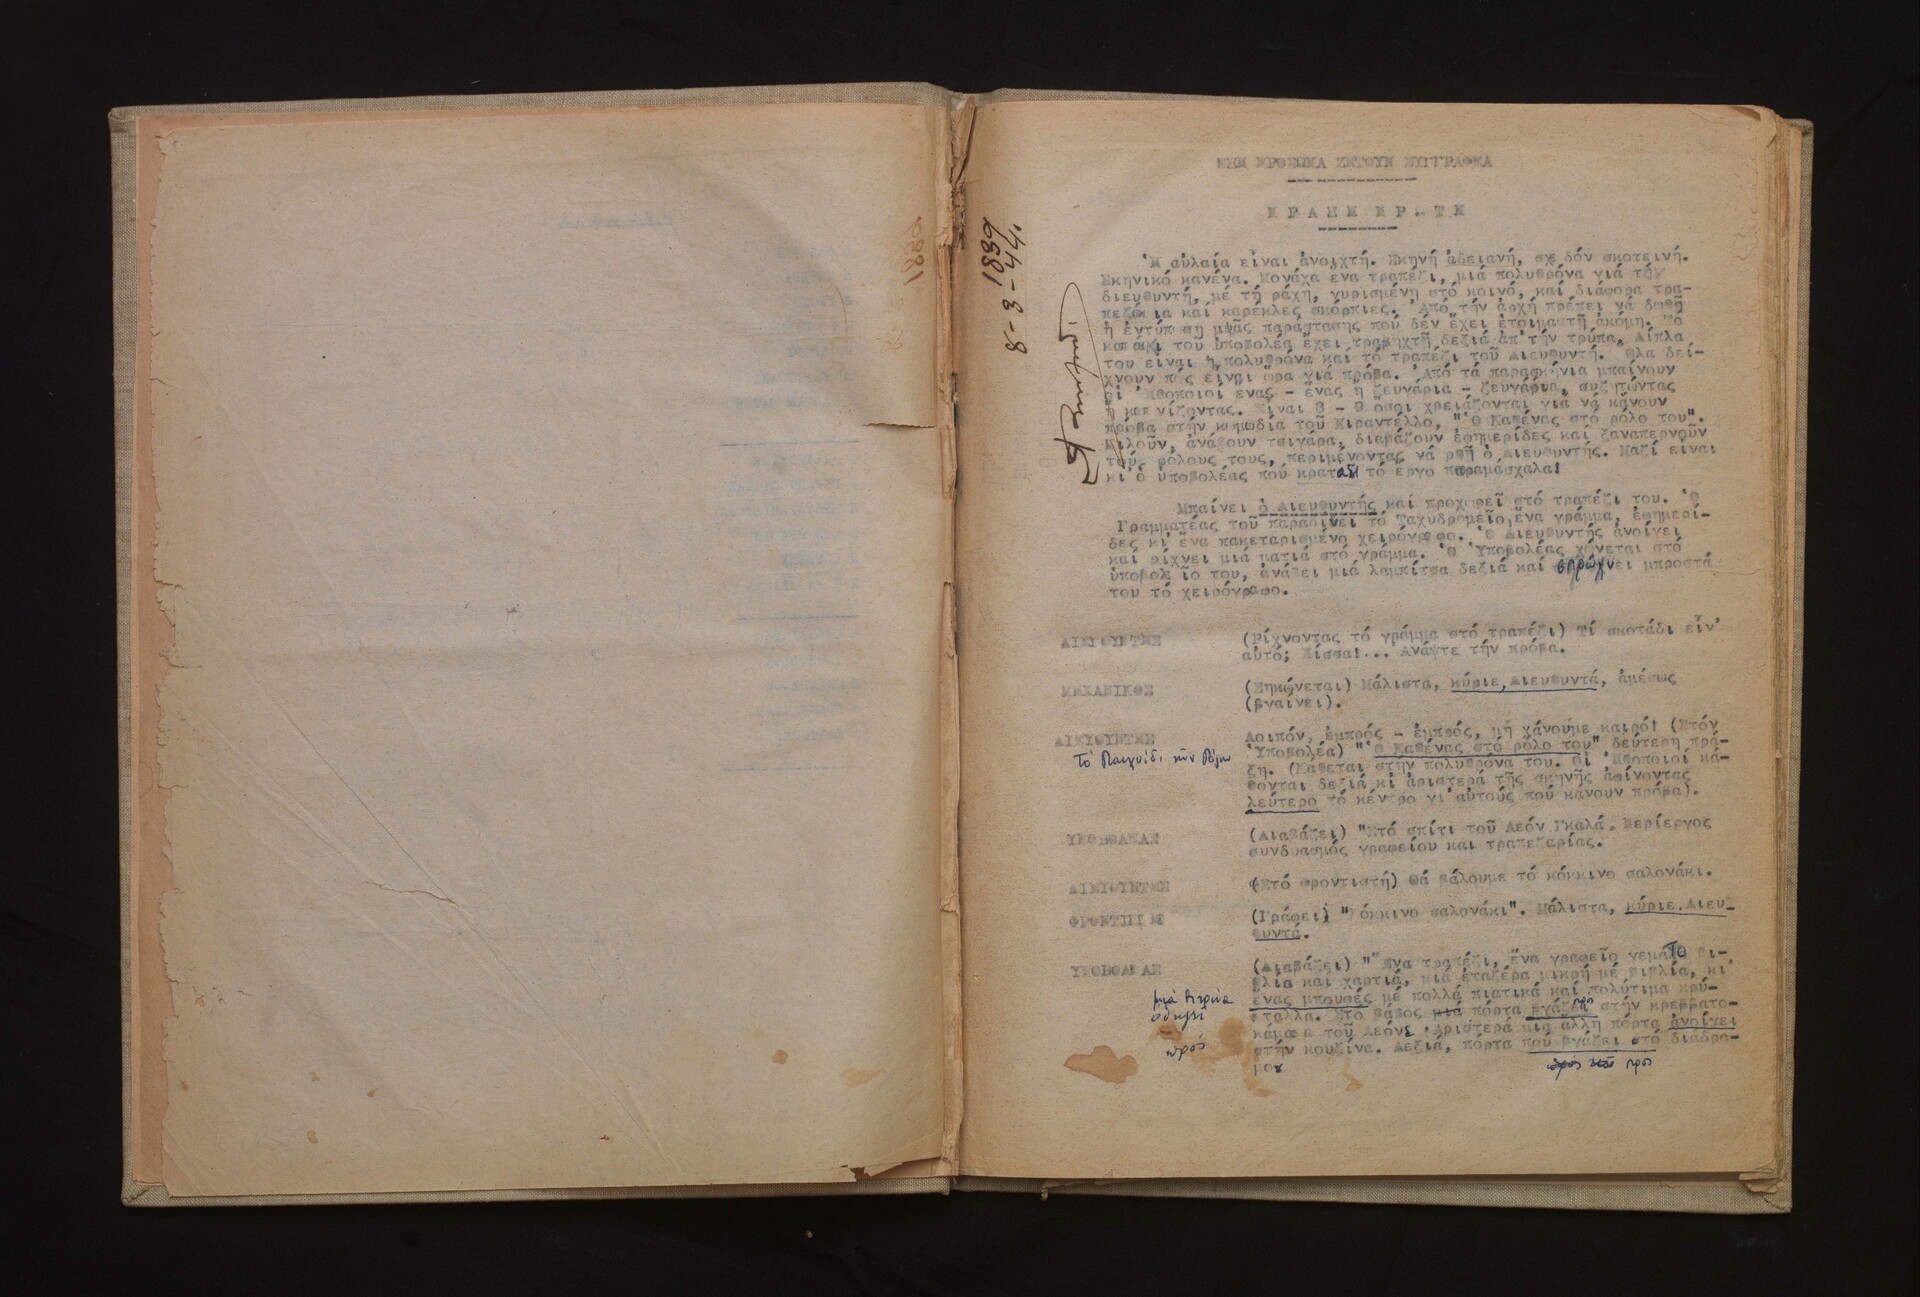 ΕΞΗ ΠΡΟΣΩΠΑ ΖΗΤΟΥΝ ΣΥΓΓΡΑΦΕΑ
ΠΡΑΞΗ ΠΡΩΤΗ
8-3-44.
1889
Ἡ αὐλαία εἶναι ἀνοιχτή. Σκηνή ἀδειανή, σχε δόν σκοτεινή.
Σκηνικό κανένα. Μονάχα ἕνα τραπέζι, μιά πολυθρόνα γιά τόν
διευθυντή, μέ τή ράχη, γυρισμένη στό κοινό, καί διάφορα τρα-
πεζάκια καί καρέκλες σκόρπιες. Ἀπό τήν ἀρχή πρέπει νά δωθῆ
ἡ ἐντύπωση μιᾶς παράστασης πού δέν ἔχει ἑτοιμαστῆ ἀκόμη. Τό
καπάκι τοῦ ὑποβολέα ἔχει τραβηχτῆ δεξιά ἀπ' τήν τρύπα. Δίπλα
του εἶναι ἡ πολυθρόνα καί τό τραπέζι τοῦ Διευθυντῆ. Ὅλα δεί-
χνουν πώς εἶναι ὥρα γιά πρόβα. Ἀπό τά παρασκήνια μπαίνουν
οἱ Ἠθοποιοί ἕνας - ἕνας ἤ ζευγάρια - ζευγάρια, συζητώντας
ἤ καπνίζοντας. Εἶναι 8 - 9 ὅσοι χρειάζονται γιά νά κάνουν
πρόβα στήν κωμωδία τοῦ Πιραντέλλο, "Ὁ Καθένας στό ρόλο του".
Μιλοῦν, ἀνάβουν τσιγάρα, διαβάζουν ἐφημερίδες καί ξαναπερνοῦν
τούς ρόλους τους, περιμένοντας νά ρθῆ ὁ Διευθυντής. Μαζί εἶναι
κι' ὁ ὑποβολέας πού κρατάει τό ἔργο παραμάσχαλα!
Μπαίνει ὁ Διευθυντής καί προχωρεῖ στό τραπέζι του. Ὁ
Γραμματέας τοῦ παραδίνει τό Ταχυδρομεῖο, ἕνα γράμμα, ἐφημερί-
δες κι' ἕνα πακεταρισμένο χειρόγραφο. Ὁ Διευθυντής ἀνοίγει
καί ρίχνει μιά ματιά στό γράμμα. Ὁ Ὑποβολέας χώνεται στό
ὑποβολεῖο του, ἀνάβει μιά λαμπίτσα δεξιά καί στρώνει μπροστά
του τό χειρόγραφο.
ΔΙΕΥΘΥΝΤΗΣ (Ρίχνοντας τό γράμμα στό τραπέζι) Τί σκοτάδι εἶν'
αὐτό; Πίσσα!... Ἀνάψτε τήν πρόβα.
ΜΗΧΑΝΙΚΟΣ (Σηκώνεται) Μάλιστα, κύριε, Διευθυντά, ἀμέσως
(βγαίνει).
ΔΙΕΥΘΥΝΤΗΣ Λοιπόν, ἐμπρός - ἐμπρός, μή χάνουμε καιρό! (Στόν
Ὑποβολέα) "Ὁ Καθένας στό ρόλο του" δεύτερη πρά-
Τό Παιχνίδι τῶν Ρόλων
ξη. (Κάθεται στήν πολυθρόνα του. Οἱ Ἠθοποιοί κά-
θονται δεξιά κι' ἀριστερά τῆς σκηνῆς ἀφίνοντας
λεύτερο τό κέντρο γι' αὐτούς πού κάνουν πρόβα).
ΥΠΟΒΟΛΕΑΣ (Διαβάζει) "Στό σπίτι τοῦ Λεόν Γκαλά. Περίεργος
συνδυασμός γραφείου καί τραπεζαρίας.
ΔΙΕΥΘΥΝΤΗΣ (Στό Φροντιστή) Θά βάλουμε τό κόκκινο σαλονάκι.
ΦΡΟΝΤΙΣΤΗΣ (Γράφει) "Κόκκινο σαλονάκι". Μάλιστα, κύριε. Διευ-
θυντά.
ΥΠΟΒΟΛΕΑΣ (Διαβάζει) "Ἕνα τραπέζι, ἕνα γραφεῖο γεμάτο βι-
βλία καί χαρτιά, μιά ἐταζέρα μικρή μέ βιβλία, κι'
μιά βιτρίνα
ἕνας μπουφές μέ πολλά πιατικά καί πολύτιμα κρύ-
σταλλα. Στό βάθος μιά πόρτα βγάζει πρός στήν κρεββατο-
ὁδηγεῖ
κάμαρα τοῦ Λεόνε. Ἀριστερά μιά ἄλλη πόρτα ἀνοίγει
πρός
στήν κουζίνα. Δεξιά, πόρτα πού βγάζει στό διάδρο-
μο
πρός